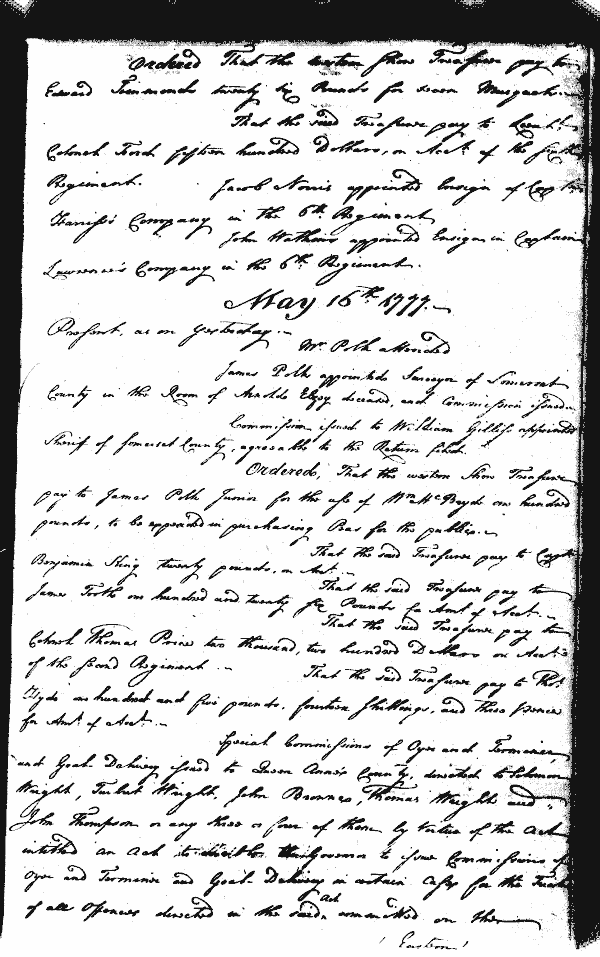 Ordered That the western Shore Treasurer pay to
Edward Timmonds twenty six Pounds for seven Musquets.
That the said Treasurer pay to Lieut.
Colonel fifteen hundred Dollars, on Acct. of the sixth
Regiment. Jacob Norris appointed Ensign of Captain
Harriss's Company in the 6th Regiment
John Wathers appointed Ensign in Captain
Lawrence's Company in the 6th Regiment.
May 16th 1777.
Present, as on yesterday.
Mr. Polk attended
James Polk appointed Surveyor of Somerset
County in the Room of Arnold Elzey deceased, and Commission issued.
Commission issued to William Gilliss appointed
Sheriff of Somerset County, agreeable to the Return
Ordered, That the western Shore Treasurer
pay to James Polk Junior for the use of Wm. McBryde one hundred
pounds, to be expended in purchasing for the public.
That the said Treasurer pay to Capt.
Benjamin King twenty pounds, on Acct.
That the said Treasurer pay to
James Tootle one hundred and twenty six Pounds for Amt. of Acct.
That the said Treasurer pay to
Colonel Thomas Price two thousand, two hundred Dollars on Acct.
of the second Regiment. That the said Treasurer pay to Thos.
Clyde one hundred and five pounds, fourteen shillings, and three pence
for Amt. of Acct.
Special Commissions of Oyer and Terminer,
and Goal Delivery issued to Queen Anne's County, directed to Solomon
Wright, Turbut Wright, John Brownes, Thomas Wright and
John Thompson or any three or four of them by virtue of the Act
intitled an Act to the Governor to issue Commissions of
Oyer and Terminer and Goal Delivery in certain Cases for the Trial
of all Offences directed in the said Act committed on the
Eastern